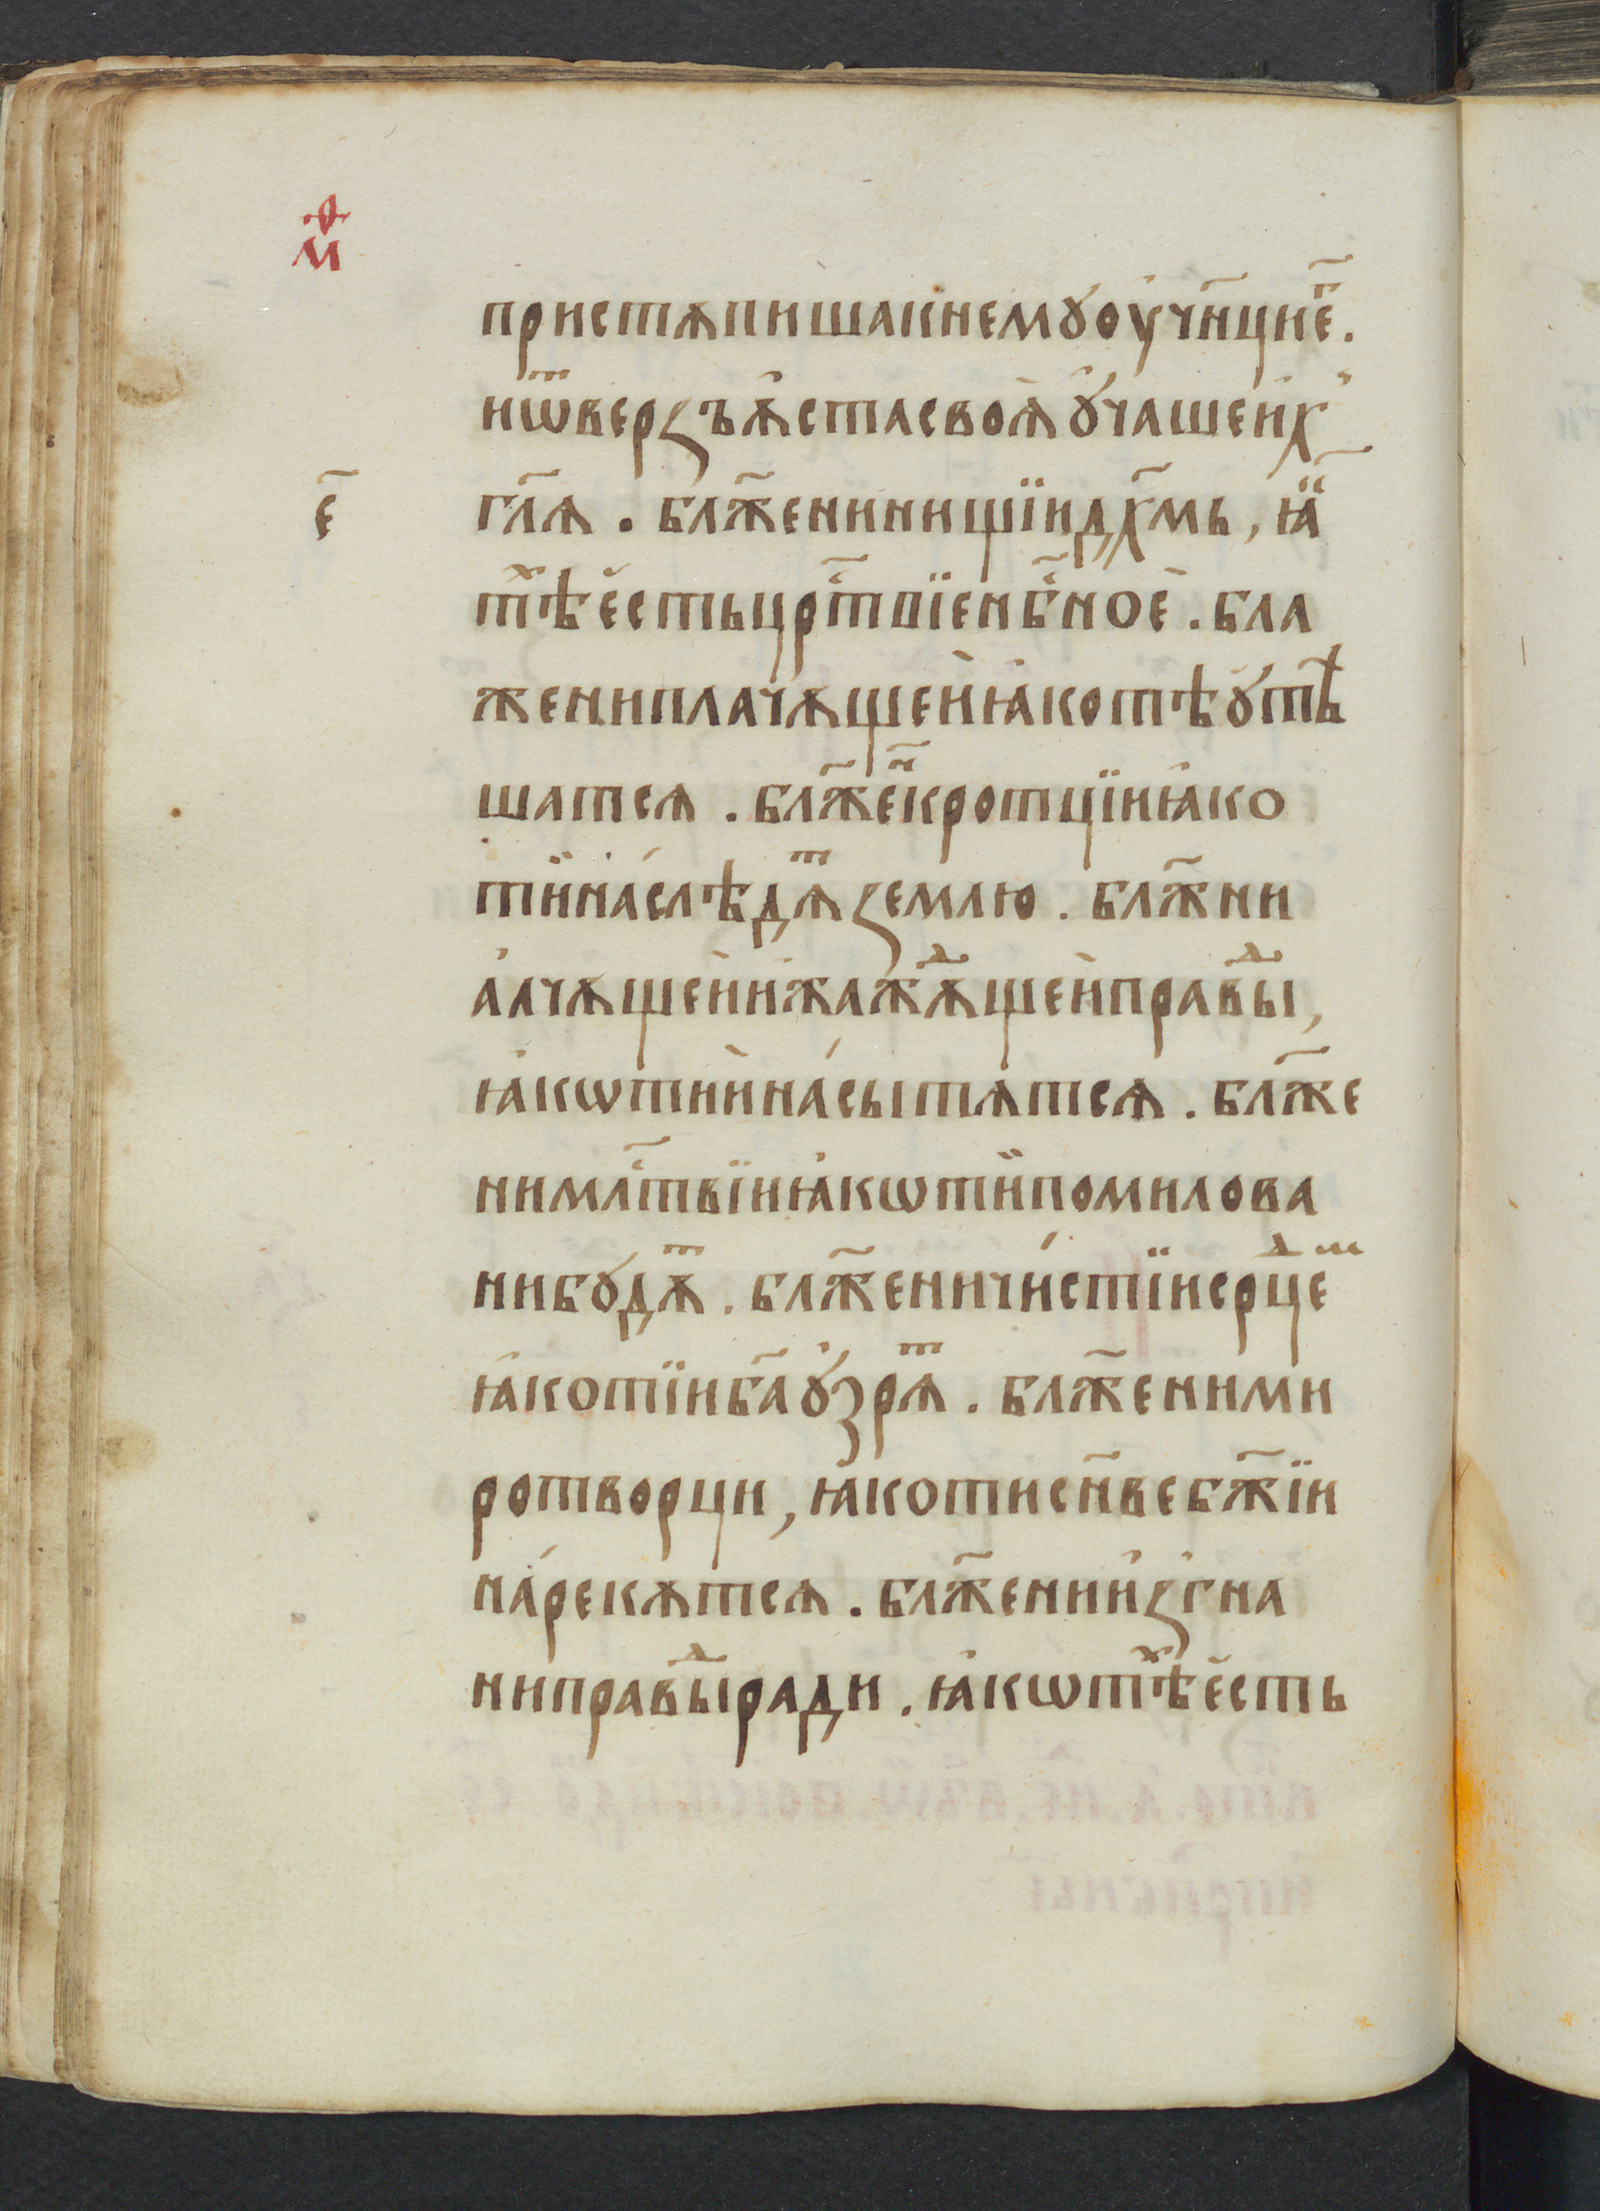 мѳ
пристѫпишакнемꙋоу҆чн҃цие҃г.
иѿверзъѫ҆стасвоѧ҆ꙋ҆чашеи҆х
є҃
гл҃ѧ. бл҃женинищїидх҃мь, ꙗ҆҃
тѣⷯе҆стьцр҇твїенб҇ное҆. бла
жениплачѫщеи҆ꙗ҆котѣꙋ҆тѣ
шатсѧ. бл҃женⷩ҇кротцїиꙗ҆ко
тїина́слѣдѧⷮземлю. бл҃жни
а҆лчѫщеи҆и҆жажⷣѫщеи҆правⷣы,
ꙗ҆кѡтїина́сытѧтсѧ. бл҃же
нимлⷭ҇твїиꙗ҆кѡтїипомилова
нибꙋдѫⷮ. бл҃женичи́стїисрⷣцеⷨ
ꙗ҆котїибг҃аꙋ҆зрѧⷮ. бл҃женими
ротворци, ꙗ҆котисн҃вебж҃їи
на́рекѫтсѧ. бл҃жении҆згна
ниправⷣыради. ꙗ҆кѡтѣⷯе҆сть